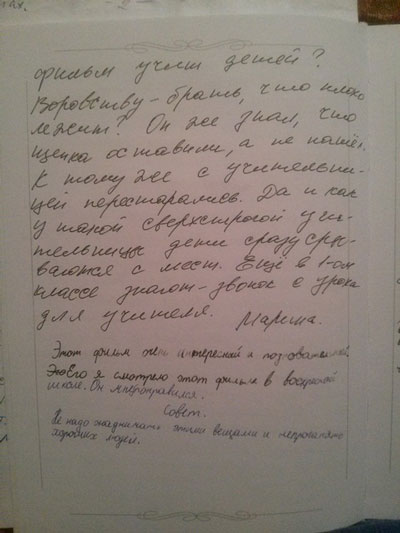 фильм учит детей?
Воровству – брать, что плохо
лежит? Он же знал, что
щенка оставили, а не нашёл.
К тому же с учительни-
цей перестарались. Да и как
у такой сверхстрогой учи-
тельницы дети сразу сры-
ваются с мест. Ещё в 1-ом
классе знают – звонок с урока
для учителя.
Марина.
Этот фильм очень интересный и познавательный.
Его я смотрела этот фильм в воскресной
школе. Он мне понравился.
Совет.
Не надо жадничать этими вещами и
хороших людей.